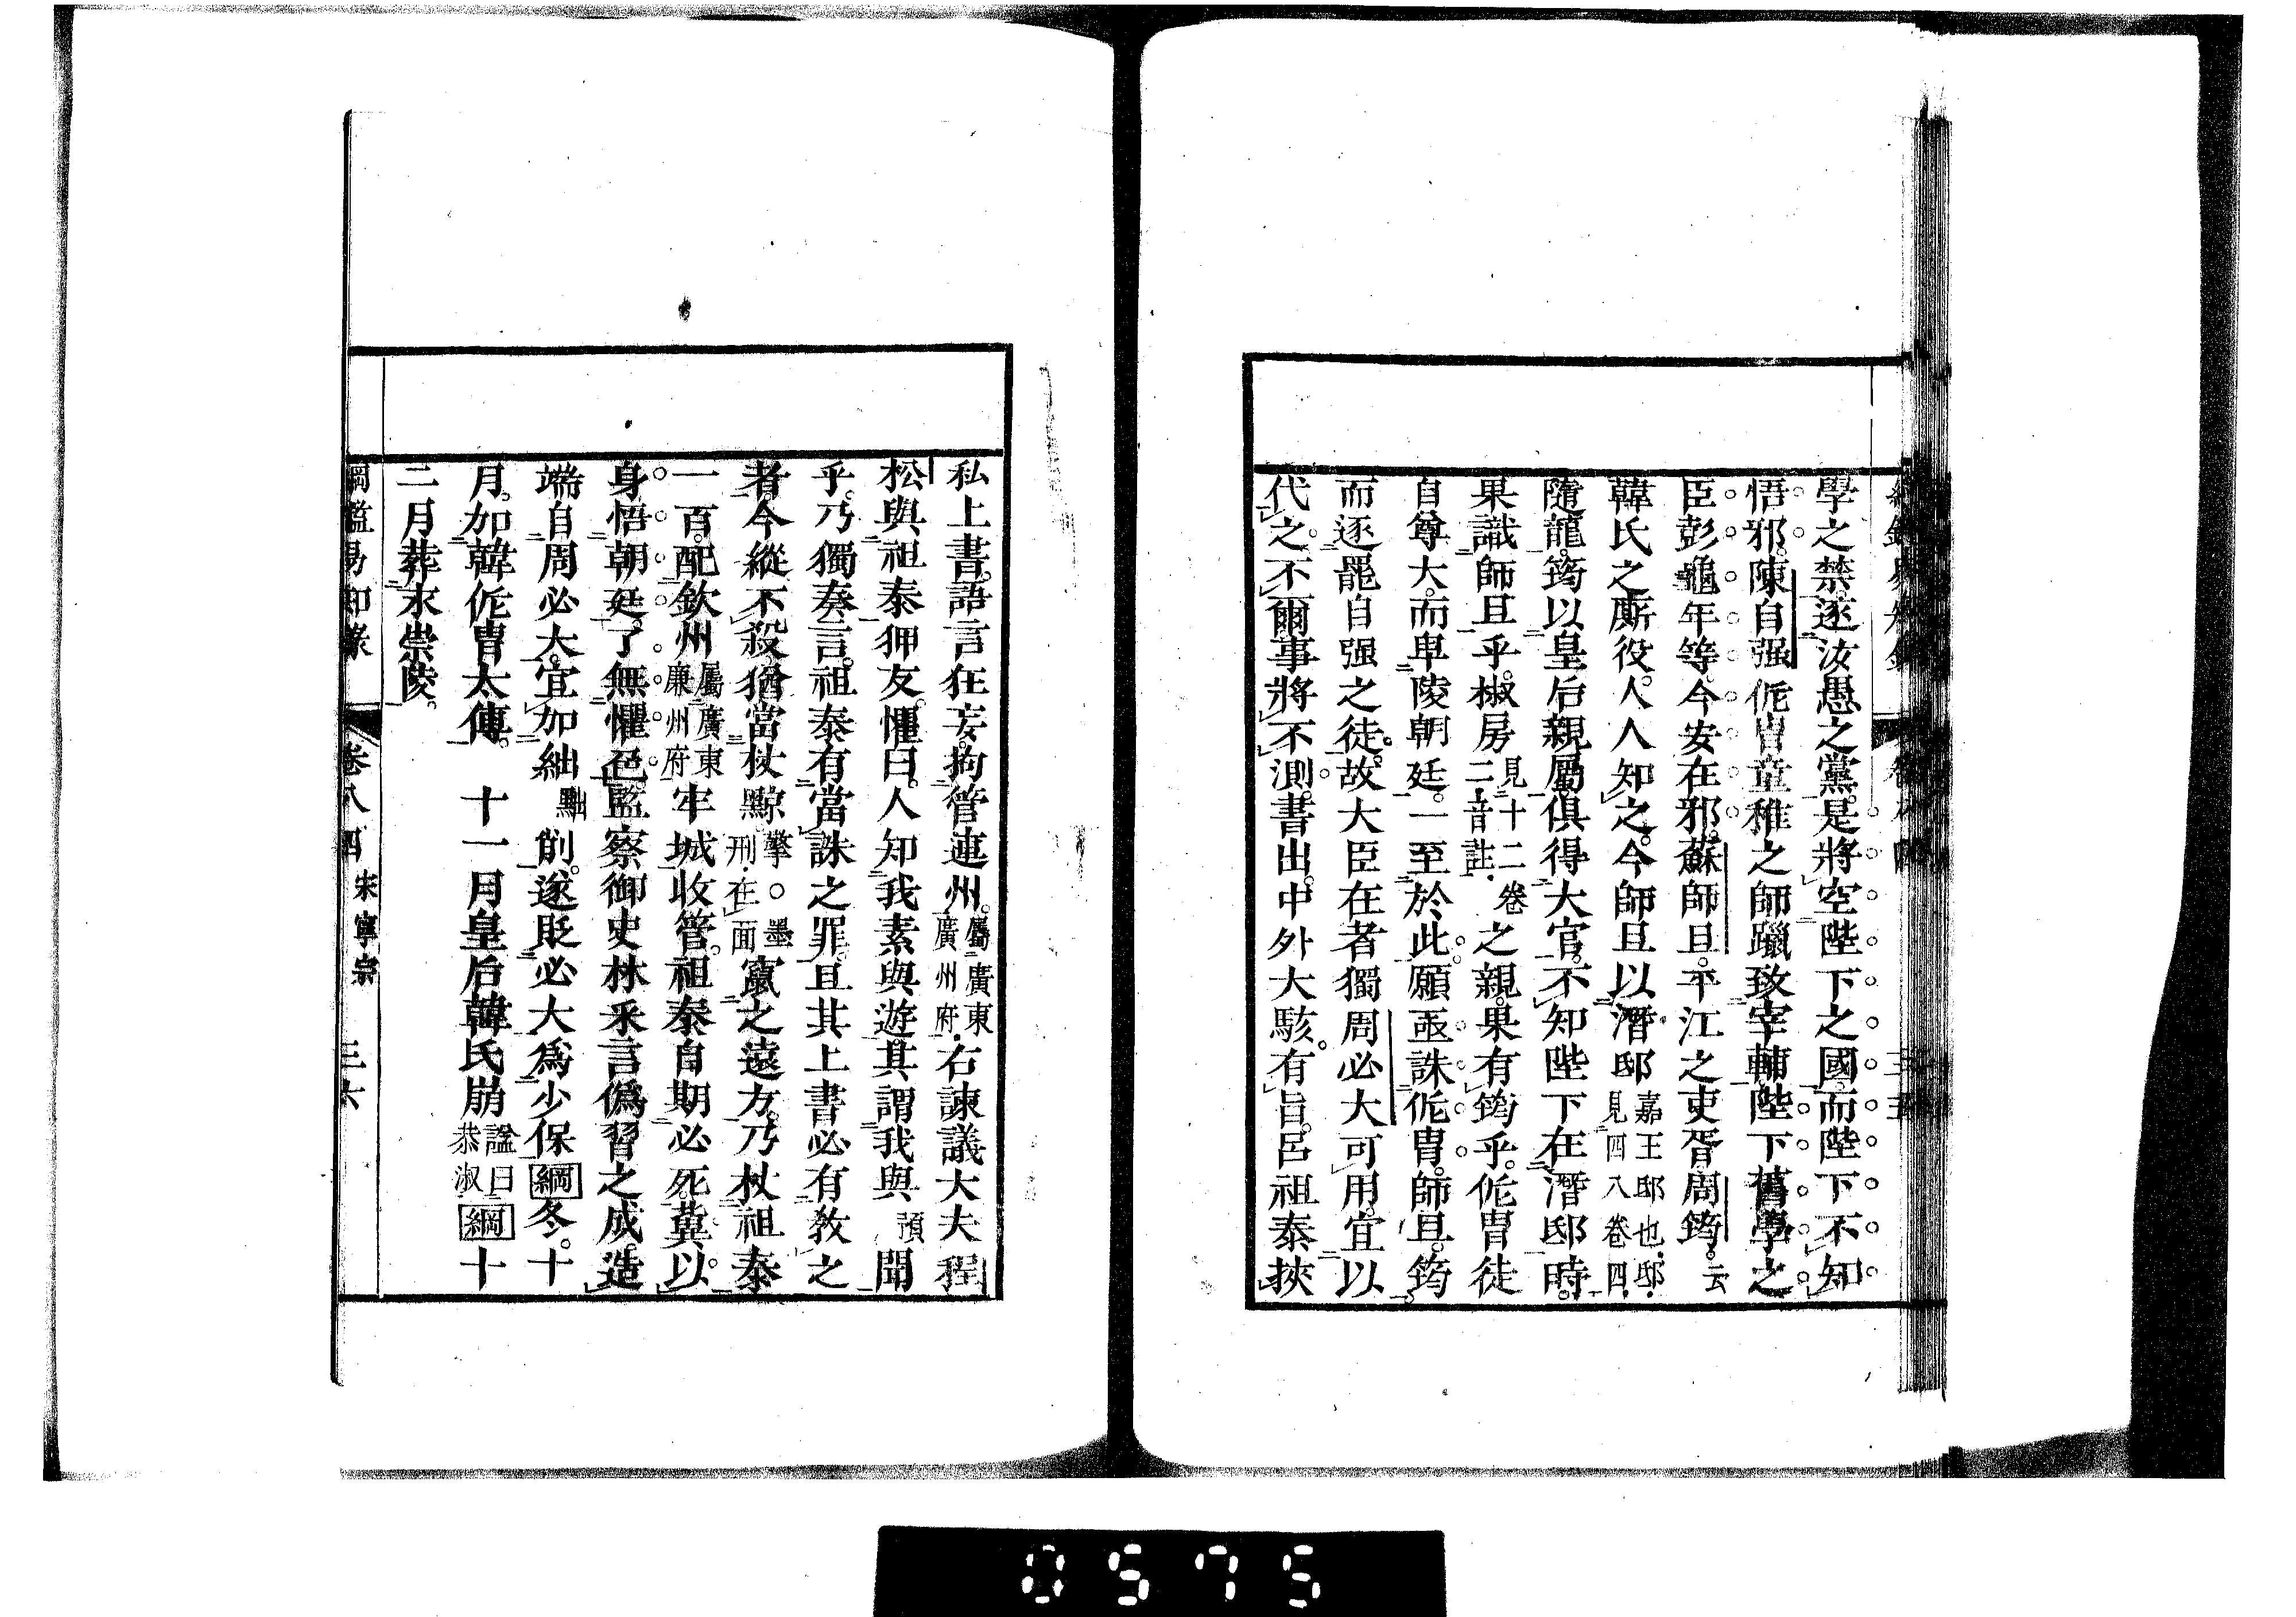 學之禁。逐汝愚之黨。是將空陛下之國。而陛下不知
悟邪。陳自强侂冑童稚之師。躐致宰輔。陛下舊學之
臣彭龜年等。今安在邪。蘇師旦。平江之吏胥。周筠。云
韓氏之厮役。人人知之。今師旦以潛邸嘉王邸也。邸見四八卷四隨龍。筠以皇后親屬。俱得大官。不知陛下在潛邸時。
果識師旦乎。椒房見十二卷二音註之親。果有筠乎。侂冑徒
自尊大。而卑陵朝廷。一至於此。願亟誅侂冑。師旦。筠
而逐罷自强之徒。故大臣在者獨周必大可用。宜以
代之。不爾事將不測。書出。中外大駭。有旨。呂祖泰挾
私上書。語言狂妄。拘管連州。屬廣東廣州府右諫議大夫程
松與祖泰狎友。懼曰。人知我素與遊。其謂我與預聞
乎。乃獨奏言。祖泰有當誅之罪。且其上書必有教之
者。今縱不殺。猶當杖黥黥擎○墨刑在面竄之遠方。乃杖祖泰
一百。配欽州屬廣東廉州府牢城收管。祖泰自期必死。冀以
身悟朝廷。了無懼色。監察御史林釆言僞習之成。造
端自周必大。宜加絀黜削。遂貶必大爲少保綱冬。十
月。加韓侂冑太傅。 十一月皇后韓氏崩諡曰恭淑綱十
二月葬永崇陵。
綱鑑易知錄 卷八四 宋寧宗 三六
0575